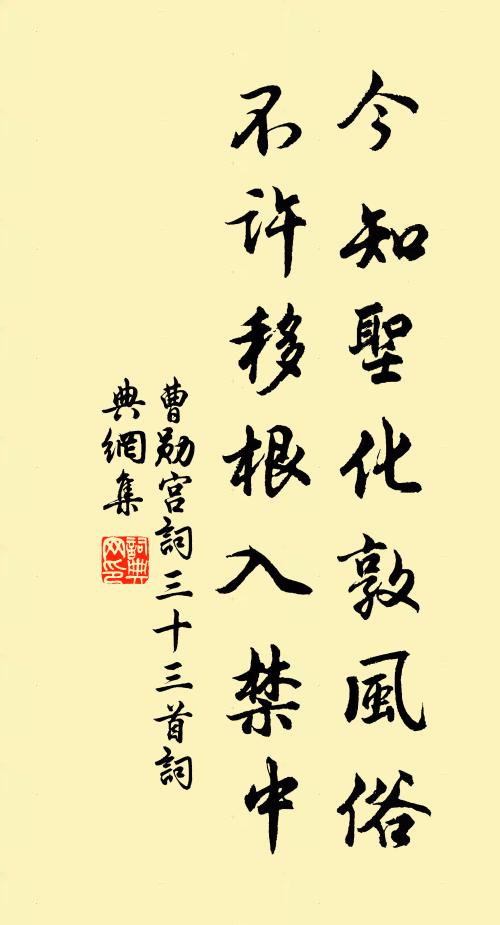 今知聖化敦風俗
不許移根入禁中
曹勛宮詞三十三首詞
典網集
詞典網印